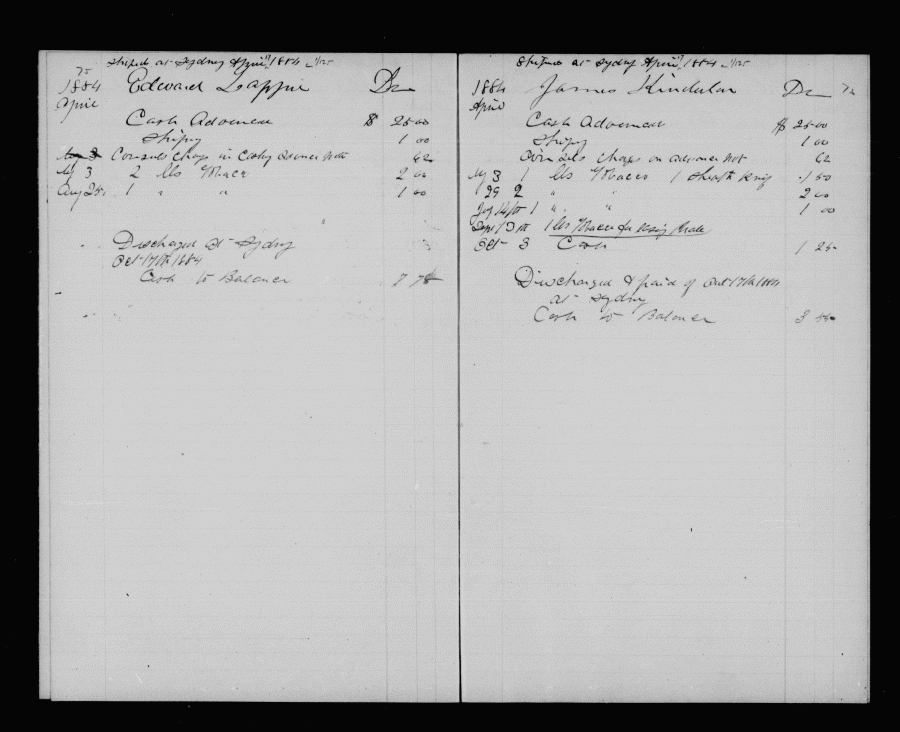 Shiped at Sydney April 1884
75
1884 Edward Lappin Dr
April
Cash Advanced $ 25 00
Shipg 1 00
Aug 3 Consuls Charg in Cashg Advance Note 62
3 2 lbs Tobacco 2 00
Aug 25 1 " " 1 00
Discharged at Sydney
Oct 17th 1884
Cash to Balance 7
Shiped at Sydney April 1884
1884 James Dr 72
April
Cash Advanced $ 25 00
Shipg 1 00
Consuls Charg on Advance Not 62
3 1 lbs Tobacco 1 Sheath Knif 1 50
29 2 " " 2 00
14th 1 " " 1 00
Sept 13th 1 lbs Tobacco for
Oct 3 Cash 1 25
Discharged & paid of Oct 17th 1884
at Sydney
Cash to Balance 3